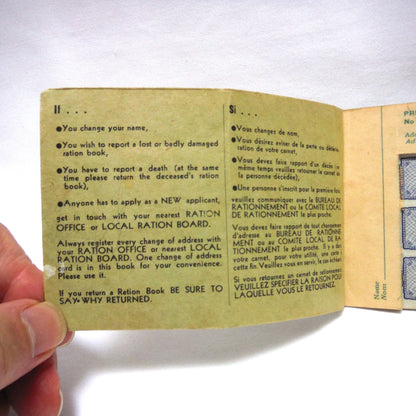 If . . .
●You change your name,
●You wish to report a lost or badly damaged
ration book,
●You have to report a death (at the same
time please return the deceased's ration
book),
●Anyone has to apply as a NEW applicant,
get in touch with your nearest RATION
OFFICE or LOCAL RATION BOARD.
Always register every change of address with
your RATION OFFICE or nearest LOCAL
RATION BOARD. One change of address
card is in this book for your convenience.
Please use it.
If you return a Ration Book BE SURE TO
SAY WHY RETURNED.
Si . . .
●Vous changez de nom,
●Vous désirez aviser de la perte ou détério-
ration de votre carnet,
●Vous devez faire rapport d'un décès (
même temps veuillez retourner le carnet de
la personne décédée),
●Une personne s'inscrit pour la première fois
veuillez communiquer avec le BUREAU DE
RATIONNEMENT ou le COMITÉ LOCAL
DE RATIONNEMENT le plus proche.
Vous devez faire rapport de tout changement
d'adresse au BUREAU DE RATIONNE-
MENT ou au COMITE LOCAL DE RA-
TIONNEMENT le plus proche. Il y a dans
votre carnet, pour votre utilité, une carte à
cette fin. Veuillez vous en servir, le cas échéant.
Si vous retournez un carnet de rationnement
VEUILLEZ SPECIFIER LA RAISON POUR
LAQUELLE VOUS LE RETOURNEZ.
No
Name
Nom